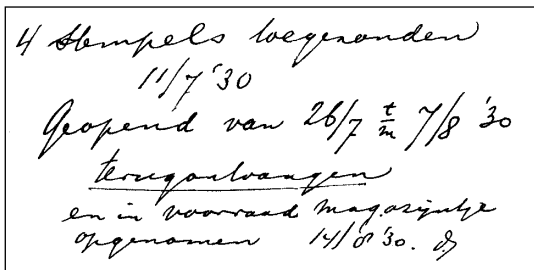 4 stempels toegezonden
11/7 '30
Geopend van 26/7 t/m 7/8 '30
terugontvangen
en in voorraad magazijntje
opgenomen 14/8 '30.